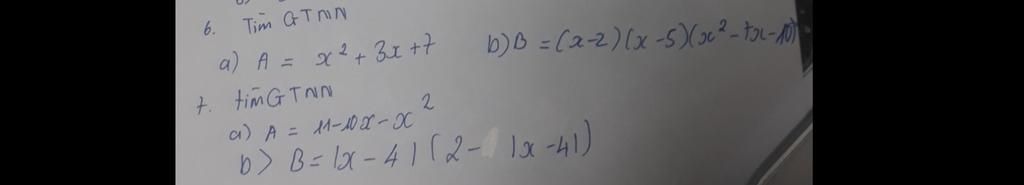 6. Tìm GTNN
a) A = x² + 3x + 7 b) B = (x-2)(x-5)(x² - 7x - 10)
7. tìm GTNN
a) A = 11 - 10x - x²
b) B = |x - 4| (2 - |x - 4|)